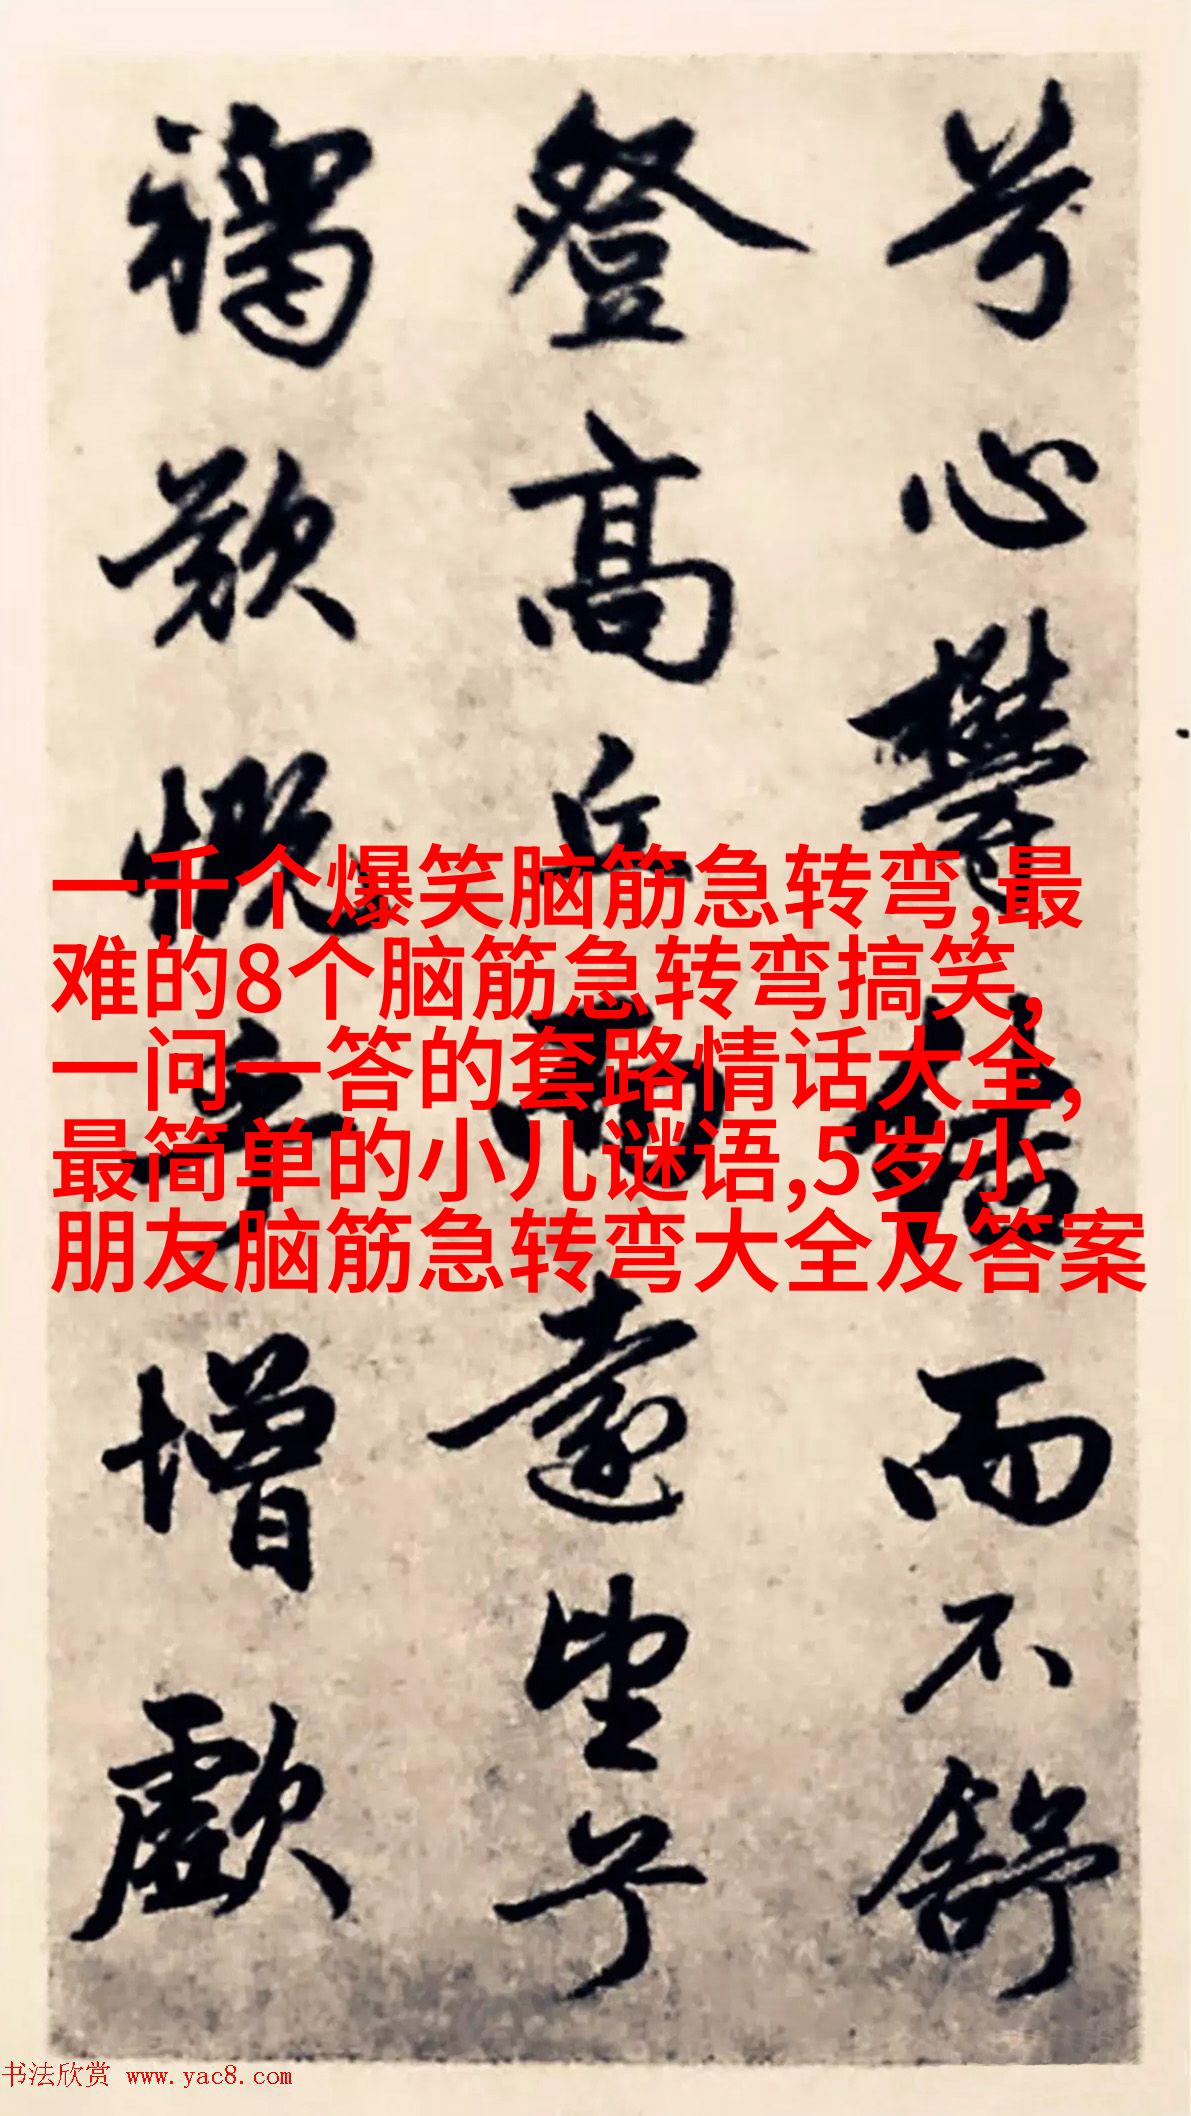 兮心鬱結而不舒
登高丘而遠望兮
歎慨乎增歔
一千个爆笑脑筋急转弯,最
难的8个脑筋急转弯搞笑,
一问一答的套路情话大全,
最简单的小儿谜语,5岁小
朋友脑筋急转弯大全及答案
书法欣赏 www.yac8.com